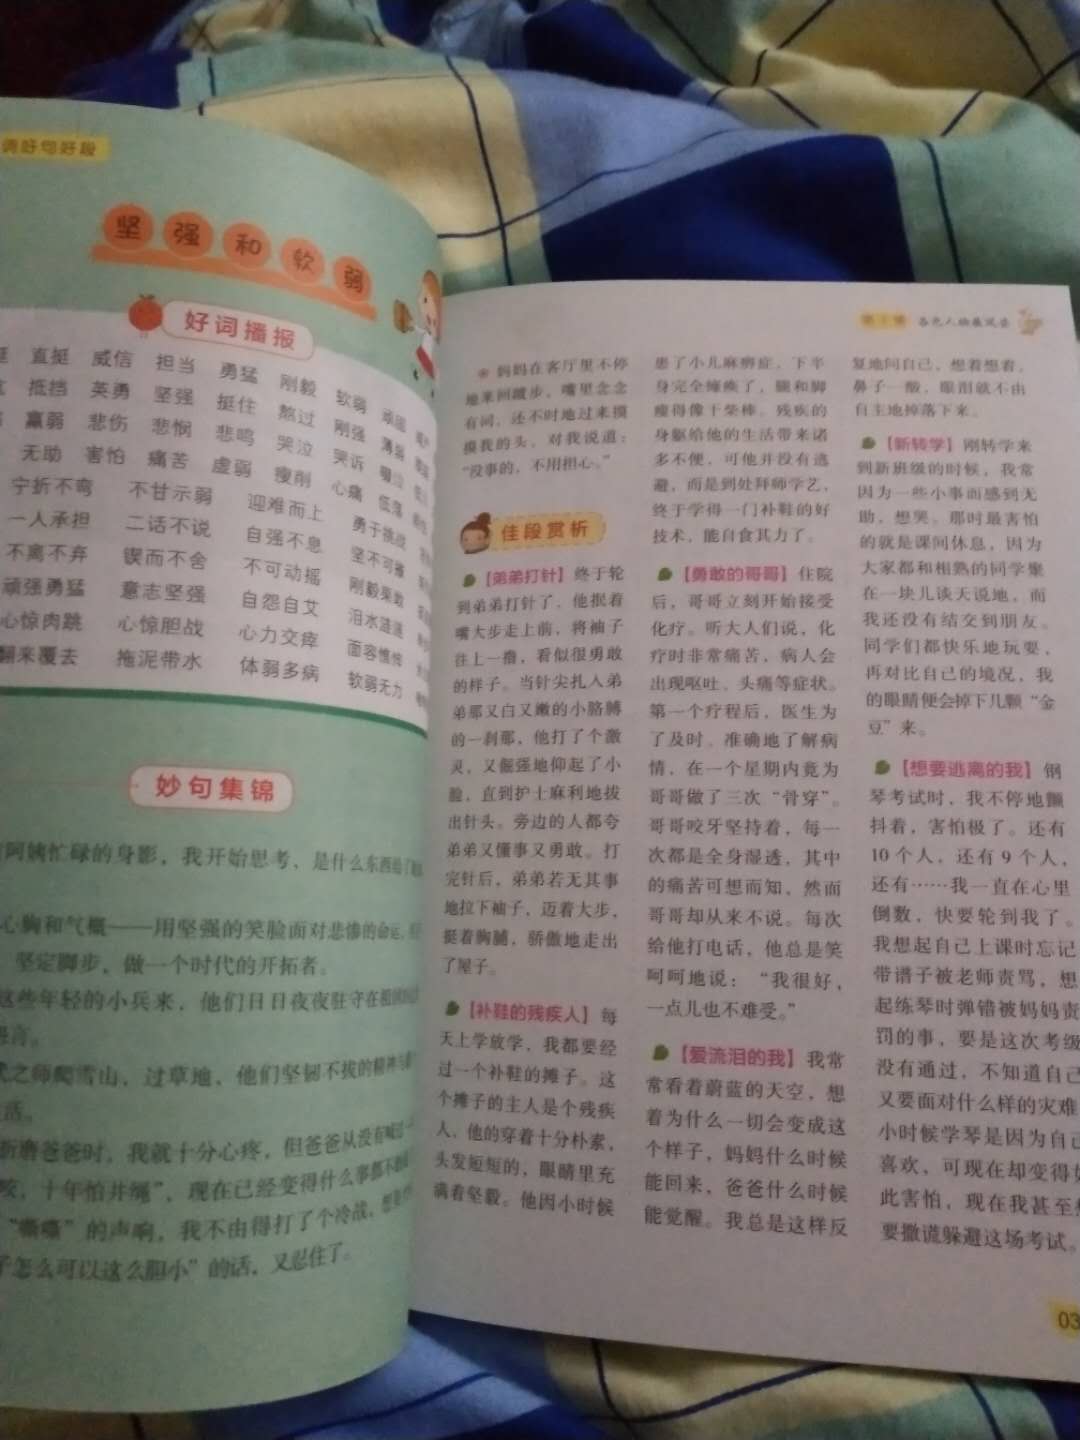 词好句好段
坚强和软弱
好词播报
直挺 威信 担当 勇猛 刚毅 软弱 顽固
抵挡 英勇 坚强 挺住 熬过 刚强 薄弱
羸弱 悲伤 悲悯 悲鸣 哭泣 哭诉
无助 害怕 痛苦 虚弱 瘦削 心痛 低落
宁折不弯 不甘示弱 迎难而上 勇于挑战
一人承担 二话不说 自强不息 坚不可摧
不离不弃 锲而不舍 不可动摇 刚毅果敢
顽强勇猛 意志坚强 自怨自艾 泪水涟涟
心惊肉跳 心惊胆战 心力交瘁 面容憔悴
翻来覆去 拖泥带水 体弱多病 软弱无力
妙句集锦
阿姨忙碌的身影，我开始思考，是什么东西给了
心胸和气概——用坚强的笑脸面对悲惨的命运，
坚定脚步，做一个时代的开拓者。
这些年轻的小兵来，他们日日夜夜驻守在祖国
之师爬雪山，过草地，他们坚韧不拔的精神
活。
折磨爸爸时，我就十分心疼，但爸爸从没有喊过
咬，十年怕井绳”，现在已经变得什么事都不
“嘶嘶”的声响，我不由得打了个冷战，想要
子怎么可以这么胆小”的话，又忍住了。
各色人物展风姿
妈妈在客厅里不停
地来回踱步，嘴里念念
有词，还不时地过来摸
摸我的头，对我说道：
“没事的，不用担心。”
佳段赏析
【弟弟打针】终于轮
到弟弟打针了，他抿着
嘴大步走上前，将袖子
往上一撸，看似很勇敢
的样子。当针尖扎入弟
弟那又白又嫩的小胳膊
的一刹那，他打了个激
灵，又倔强地仰起了小
脸，直到护士麻利地拔
出针头。旁边的人都夸
弟弟又懂事又勇敢。打
完针后，弟弟若无其事
地拉下袖子，迈着大步，
挺着胸脯，骄傲地走出
了屋子。
【补鞋的残疾人】每
天上学放学，我都要经
过一个补鞋的摊子。这
个摊子的主人是个残疾
人，他的穿着十分朴素，
头发短短的，眼睛里充
满着坚毅。他因小时候
患了小儿麻痹症，下半
身完全瘫痪了，腿和脚
瘦得像干柴棒。残疾的
身躯给他的生活带来诸
多不便，可他并没有逃
避，而是到处拜师学艺，
终于学得一门补鞋的好
技术，能自食其力了。
【勇敢的哥哥】住院
后，哥哥立刻开始接受
化疗。听大人们说，化
疗时非常痛苦，病人会
出现呕吐、头痛等症状。
第一个疗程后，医生为
了及时、准确地了解病
情，在一个星期内竟为
哥哥做了三次“骨穿”。
哥哥咬牙坚持着，每一
次都是全身湿透，其中
的痛苦可想而知，然而
哥哥却从来不说。每次
给他打电话，他总是笑
呵呵地说：“我很好，
一点儿也不难受。”
【爱流泪的我】我常
常看着蔚蓝的天空，想
着为什么一切会变成这
个样子，妈妈什么时候
能回来，爸爸什么时候
能觉醒。我总是这样反
复地问自己，想着想着，
鼻子一酸，眼泪就不由
自主地掉落下来。
【新转学】刚转学来
到新班级的时候，我常
因为一些小事而感到无
助，想哭。那时最害怕
的就是课间休息，因为
大家都和相熟的同学聚
在一块儿谈天说地，而
我还没有结交到朋友。
同学们都快乐地玩耍，
再对比自己的境况，我
的眼睛便会掉下几颗“金
豆”来。
【想要逃离的我】钢
琴考试时，我不停地颤
抖着，害怕极了。还有
10个人，还有9个人，
还有……我一直在心里
倒数，快要轮到我了。
我想起自己上课时忘记
带谱子被老师责骂，想
起练琴时弹错被妈妈责
罚的事，要是这次考级
没有通过，不知道自己
又要面对什么样的灾难
小时候学琴是因为自己
喜欢，可现在却变得如
此害怕，现在我甚至想
要撒谎躲避这场考试。
03